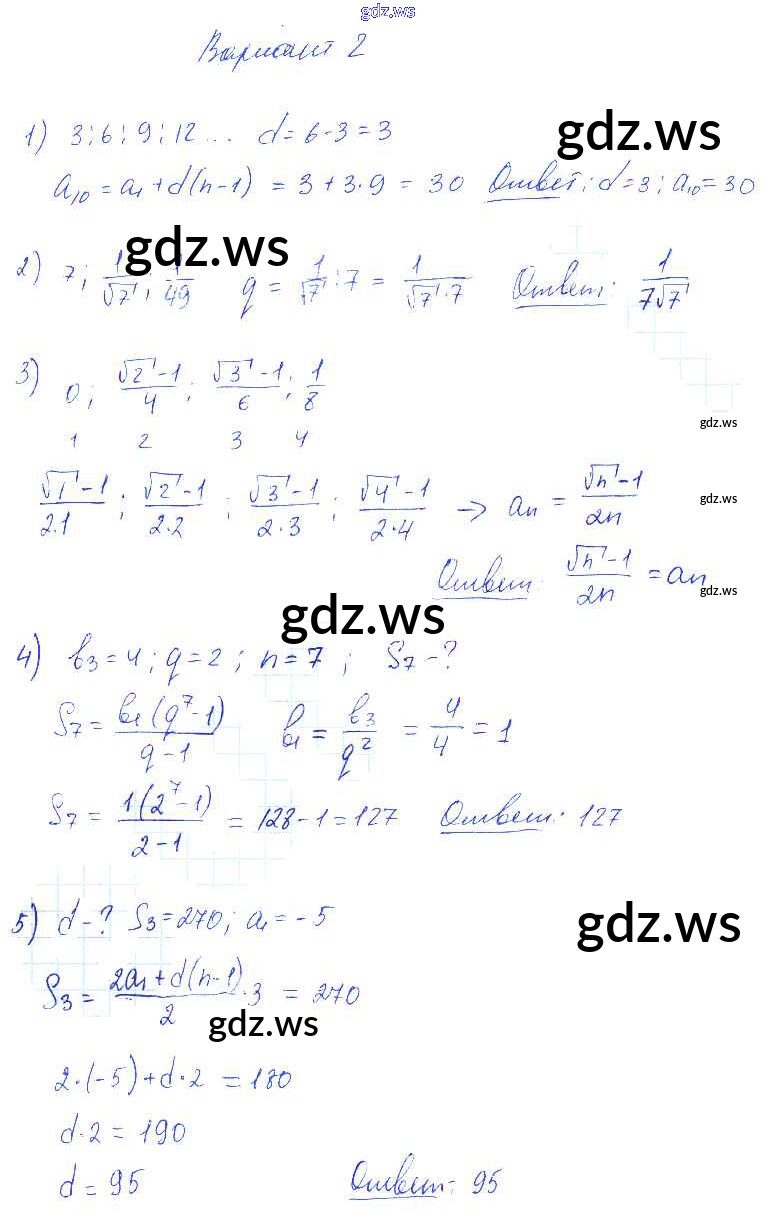 gdz.ws
Вариант 2
1) 3; 6; 9; 12... d = 6-3 = 3
gdz.ws
a₁₀ = a₁ + d(n-1) = 3 + 3·9 = 30 Ответ: d=3; a₁₀=30
gdz.ws
2) 7; 1/√7; 1/49 q = 1/√7 : 7 = 1/(√7·7) Ответ: 1/(7√7)
3) 0; (√2-1)/4; (√3-1)/6; 1/8
gdz.ws
1 2 3 4
(√1-1)/(2·1); (√2-1)/(2·2); (√3-1)/(2·3); (√4-1)/(2·4) → aₙ = (√n-1)/(2n)
gdz.ws
Ответ: (√n-1)/(2n) = aₙ
gdz.ws
gdz.ws
4) b₃=4; q=2; n=7; S₇-?
S₇ = b₁(q⁷-1)/(q-1) b₁ = b₃/q² = 4/4 = 1
S₇ = 1(2⁷-1)/(2-1) = 128-1 = 127 Ответ: 127
5) d-? S₃=270; a₁=-5
gdz.ws
S₃ = (2a₁+d(n-1))/2·3 = 270
gdz.ws
2·(-5)+d·2 = 180
d·2 = 190
d = 95 Ответ: 95